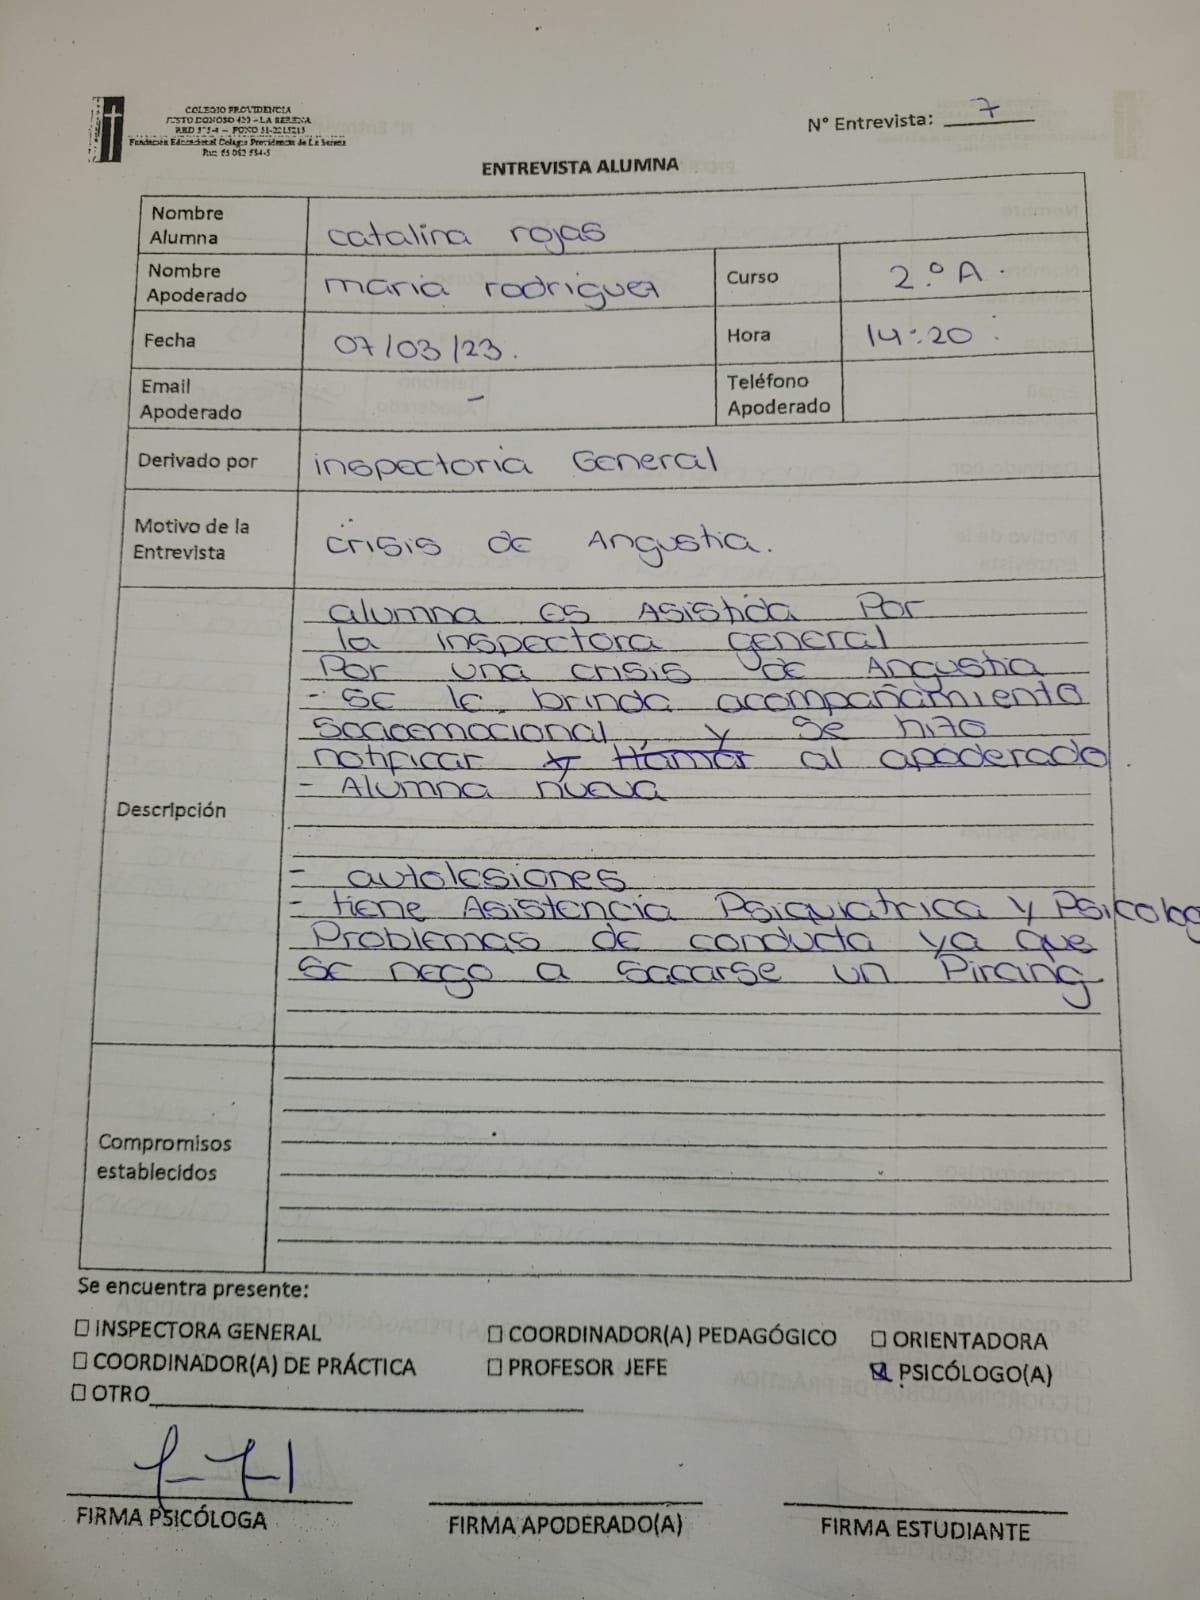 COLEGIO PROVIDENCIA
JUSTO DONOSO 420 – LA SERENA
Fundación Educacional Colegio Providencia de La Serena
N° Entrevista: 7
ENTREVISTA ALUMNA
Nombre Alumna catalina rojas
Nombre Apoderado maria rodriguez Curso 2.º A.
Fecha 07/03/23. Hora 14:20
Email Apoderado - Teléfono Apoderado
Derivado por inspectoria General
Motivo de la Entrevista crisis de Angustia.
Descripción
alumna es Asistida Por
la inspectora general
Por una crisis de Angustia
- se le brinda acompañamiento
socioemocional, y se hizo
notificar y llamar al apoderado
- Alumna nueva
- autolesiones
- tiene Asistencia Psiquiatrica y Psicolog
Problemas de conducta ya que
se nego a sacarse un Pircing
Compromisos establecidos
Se encuentra presente:
☐ INSPECTORA GENERAL ☐ COORDINADOR(A) PEDAGÓGICO ☐ ORIENTADORA
☐ COORDINADOR(A) DE PRÁCTICA ☐ PROFESOR JEFE ☑ PSICÓLOGO(A)
☐ OTRO
FIRMA PSICÓLOGA FIRMA APODERADO(A) FIRMA ESTUDIANTE